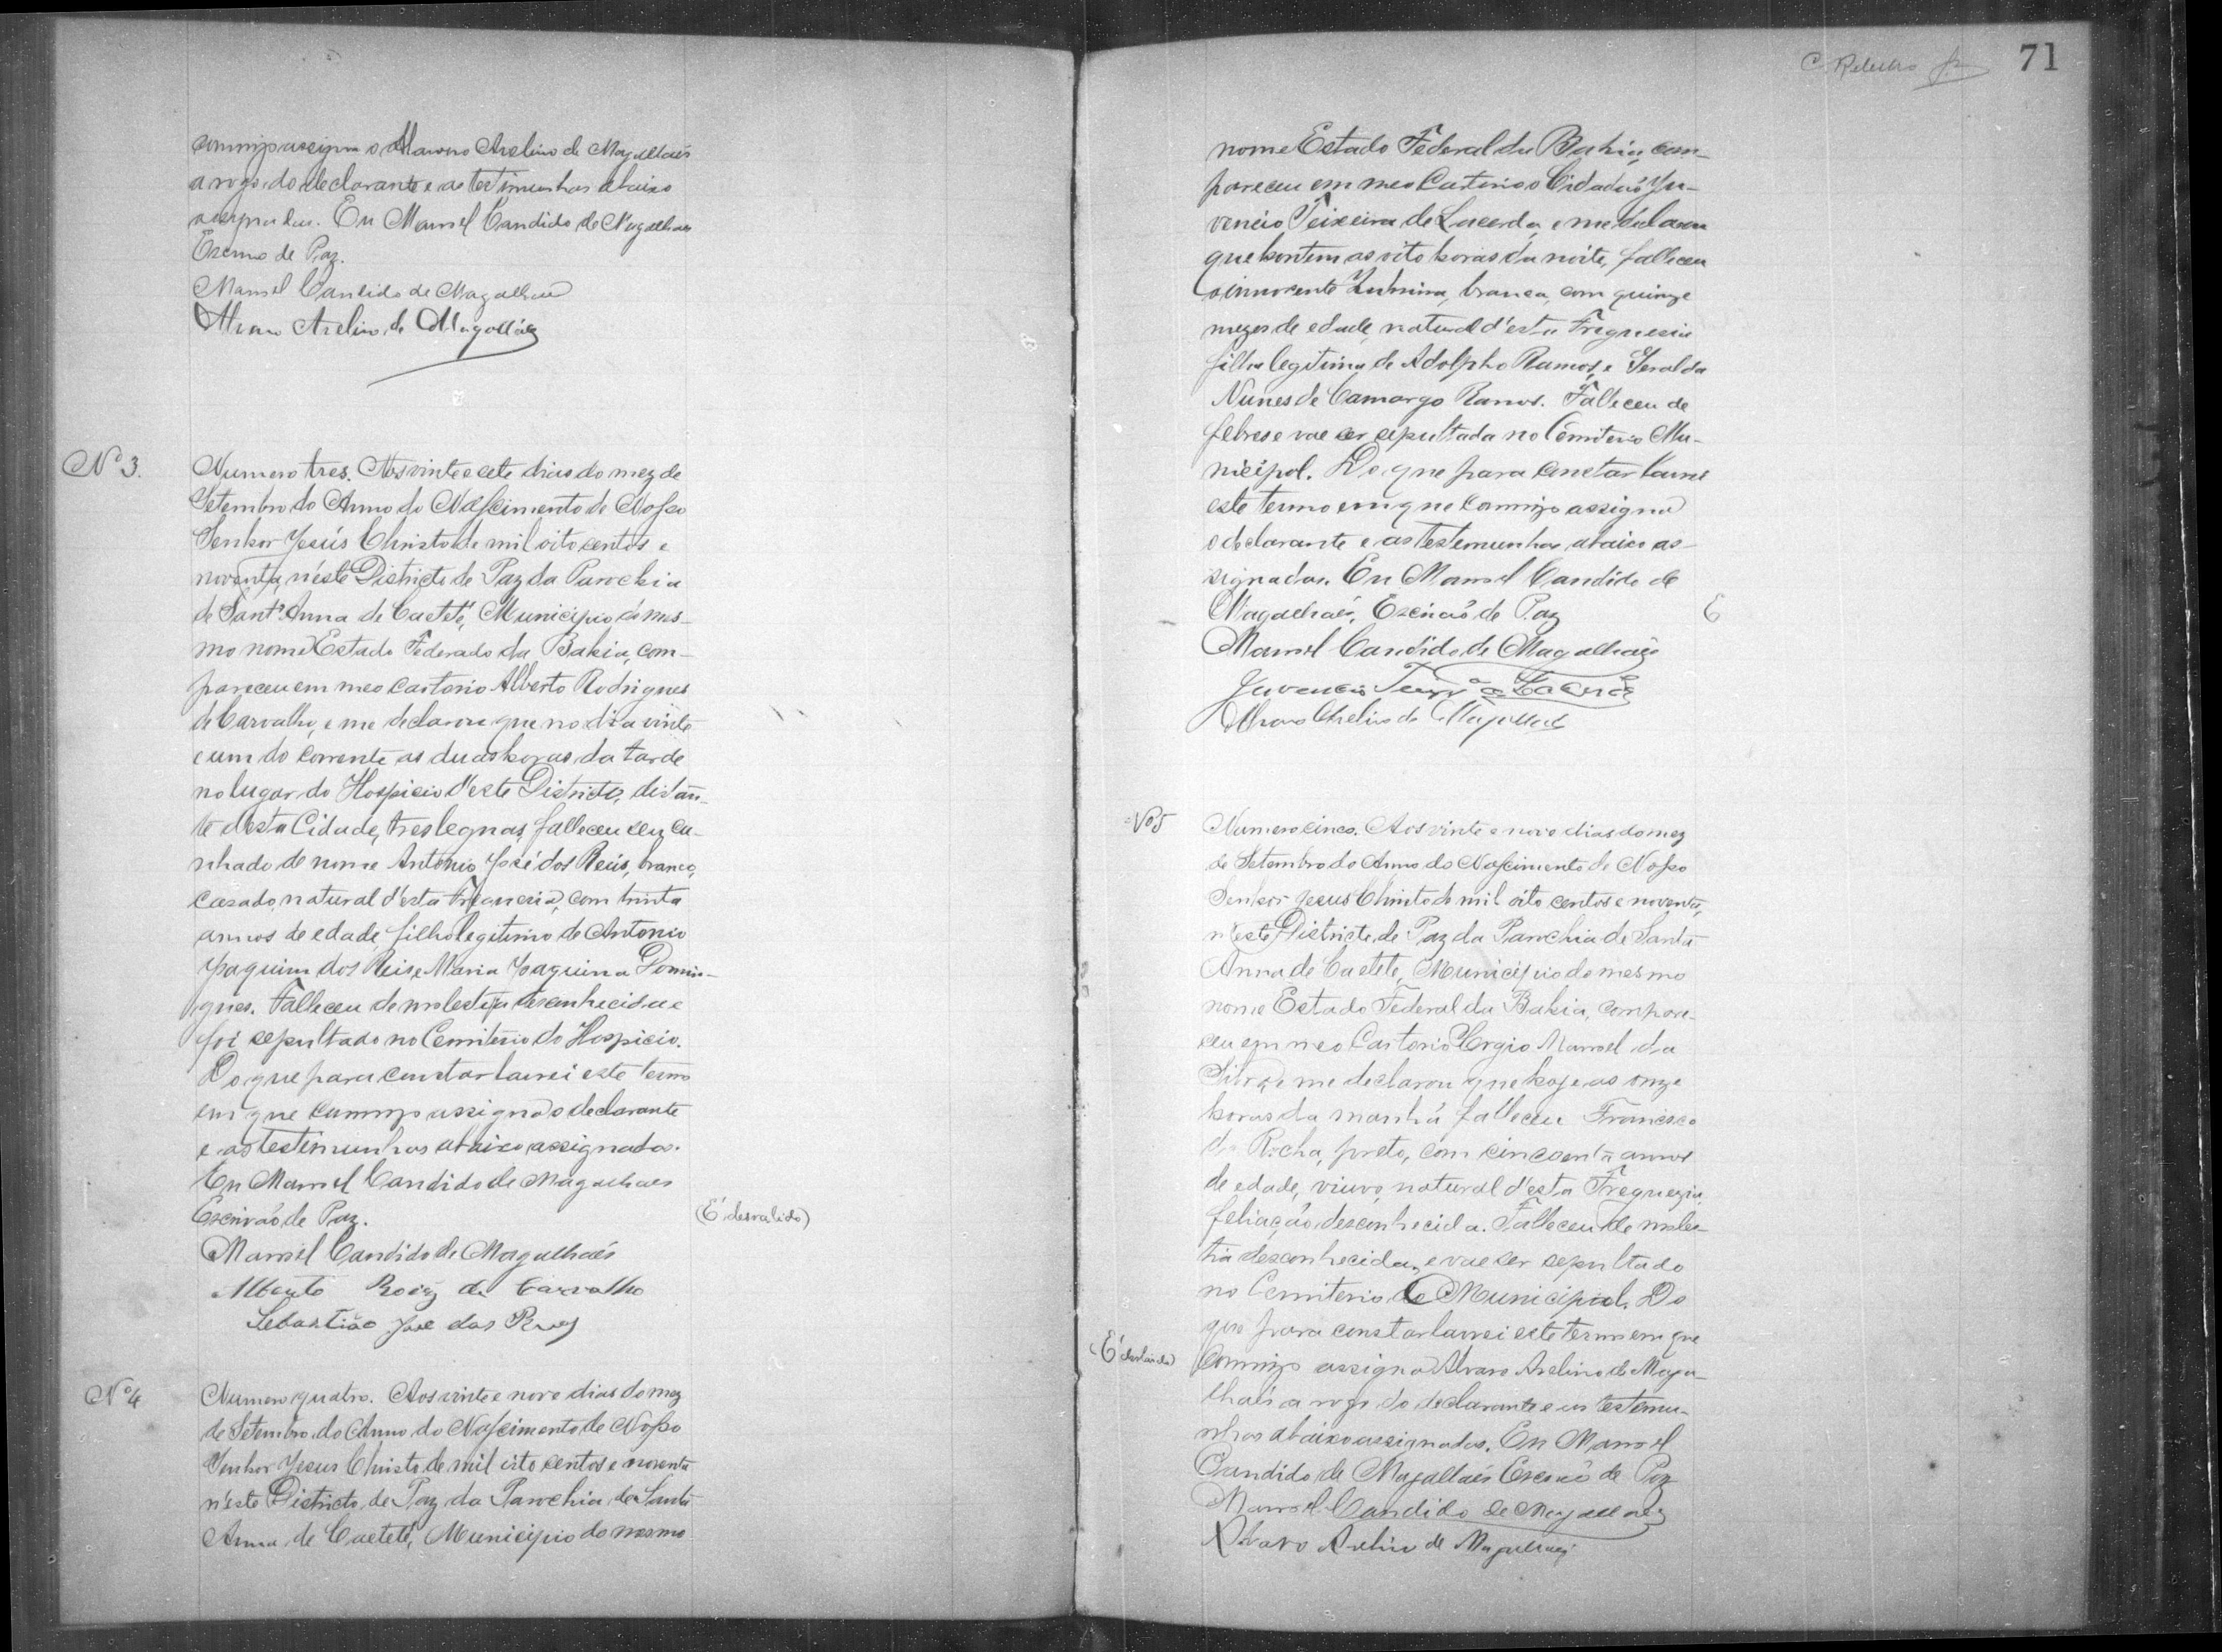 commigo assigna o Alvaro Avelino de Magalhaes
a rogo do declarante e as testimunhas abaixo
assignadas. Eu Manoel Candido de Magalhaes
Escrivão de Paz.
Manoel Candido de Magalhães
Alvaro Avelino de Magalhães
Nº 3.
Numero tres. Aos vinte e sete dias do mez de
Setembro do Anno do Nascimento de Nosso
Senhor Jesús Christo de mil oito centos e
noventa, n'este Districto de Paz da Parochia
de Sant'Anna de Caeteté, Municipio do mes-
mo nome Estado Federado da Bahia, com-
pareceu em meo Cartorio Alberto Rodrigues
de Carvalho, e me declarou que no dia vinte
e um do corrente as duas horas da tarde
no lugar do Hospicio d'este Districto, distan-
te desta Cidade, tres legoas, falleceu seu cu-
nhado de nome Antonio José dos Reis, branco,
casado, natural d'esta Freguesia, com trinta
annos de edade, filho legitimo de Antonio
Joaquim dos Reis e Maria Joaquina Domin-
gues. Falleceu de molestia desconhecida e
foi sepultado no Cemiterio do Hospicio.
Do que para constar lavrei este termo
em que commigo assigna o declarante
e as testimunhas abaixo assignadas.
Eu Manoel Candido de Magalhaes
Escrivão de Paz.
(É desvalido)
Manoel Candido de Magalhaés
Alberto Roiz de Carvalho
Sebastião José dos Reis
Nº 4
Numero quatro. Aos vinte e nove dias do mez
de Setembro do Anno do Nascimento de Nosso
Senhor Jesus Christo de mil oito centos e noventa
n'este Districto de Paz da Parochia de Santa
Anna de Caeteté, Municipio do mesmo
71
nome Estado Federal da Bahia, com-
pareceu em meo Cartorio o Cidadão Ju-
vencio Teixeira de Lacerda, e me declarou
que hontem as oito horas da noite, falleceu
a innocente branca, com quinze
mezes de edade, natural d'esta Freguesia
filha legitima de Adolpho Ramos, e Geralda
Nunes de Camargo Ramos. Falleceu de
febres e vae ser sepultada no Cemiterio Mu-
nicipal. Do que para constar lavrei
este termo em que commigo assigna
o declarante e as testemunhas abaixo as-
signadas. Eu Manoel Candido de
Magalhaés, Escrivaõ de Paz
Manoel Candido de Magalhães
Juvencio Teixrª de Lacerda
Alvaro Avelino de Magalhães
Nº 5
Numero cinco. Aos vinte e nove dias do mez
de Setembro do Anno do Nascimento de Nosso
Senhor Jesus Christo de mil oito centos e noventa,
n'este Districto de Paz da Parochia de Santa
Anna de Caeteté, Municipio do mesmo
nome Estado Federal da Bahia, compare-
ceu em meo Cartorio Manoel da
Silva, e me declarou que hoje as onze
horas da manhã falleceu Francisco
da Rocha, preto, com cincoenta annos
de edade, viuvo, natural d'esta Freguezia,
feliação desconhecida. Falleceu de moles-
tia desconhecida, e vae ser sepultado
no Cemiterio Municipal. Do
que para constar lavrei este termo em que
commigo assigna Alvaro Avelino de Maga-
lhaés a rogo do declarante e as testemu-
nhas abaixo assignadas. Eu Manoel
Candido de Magalhaés Escrivaõ de Paz
Manoel Candido de Magalhães
Alvaro Avelino de Magalhaes